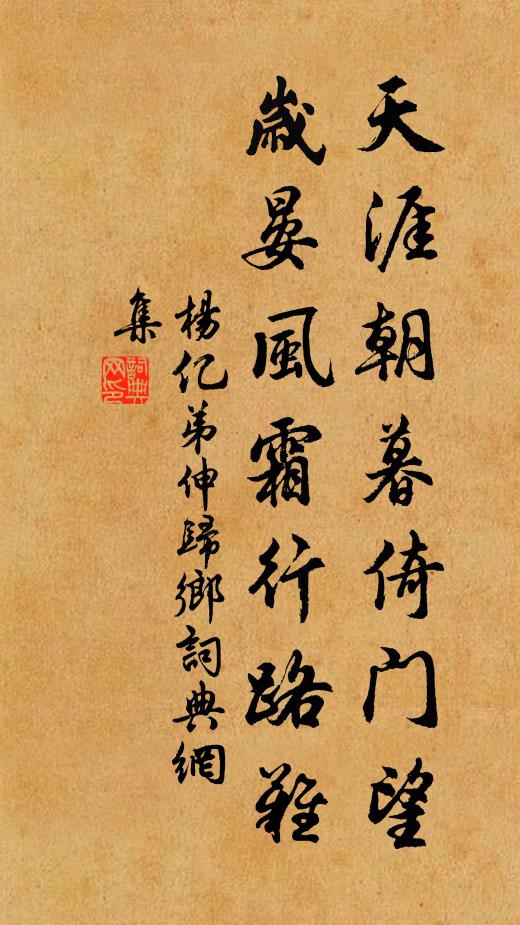 天涯朝暮倚门望
歲晏風霜行路難
楊亿弟伸歸鄉詞典網
集
詞典
网印